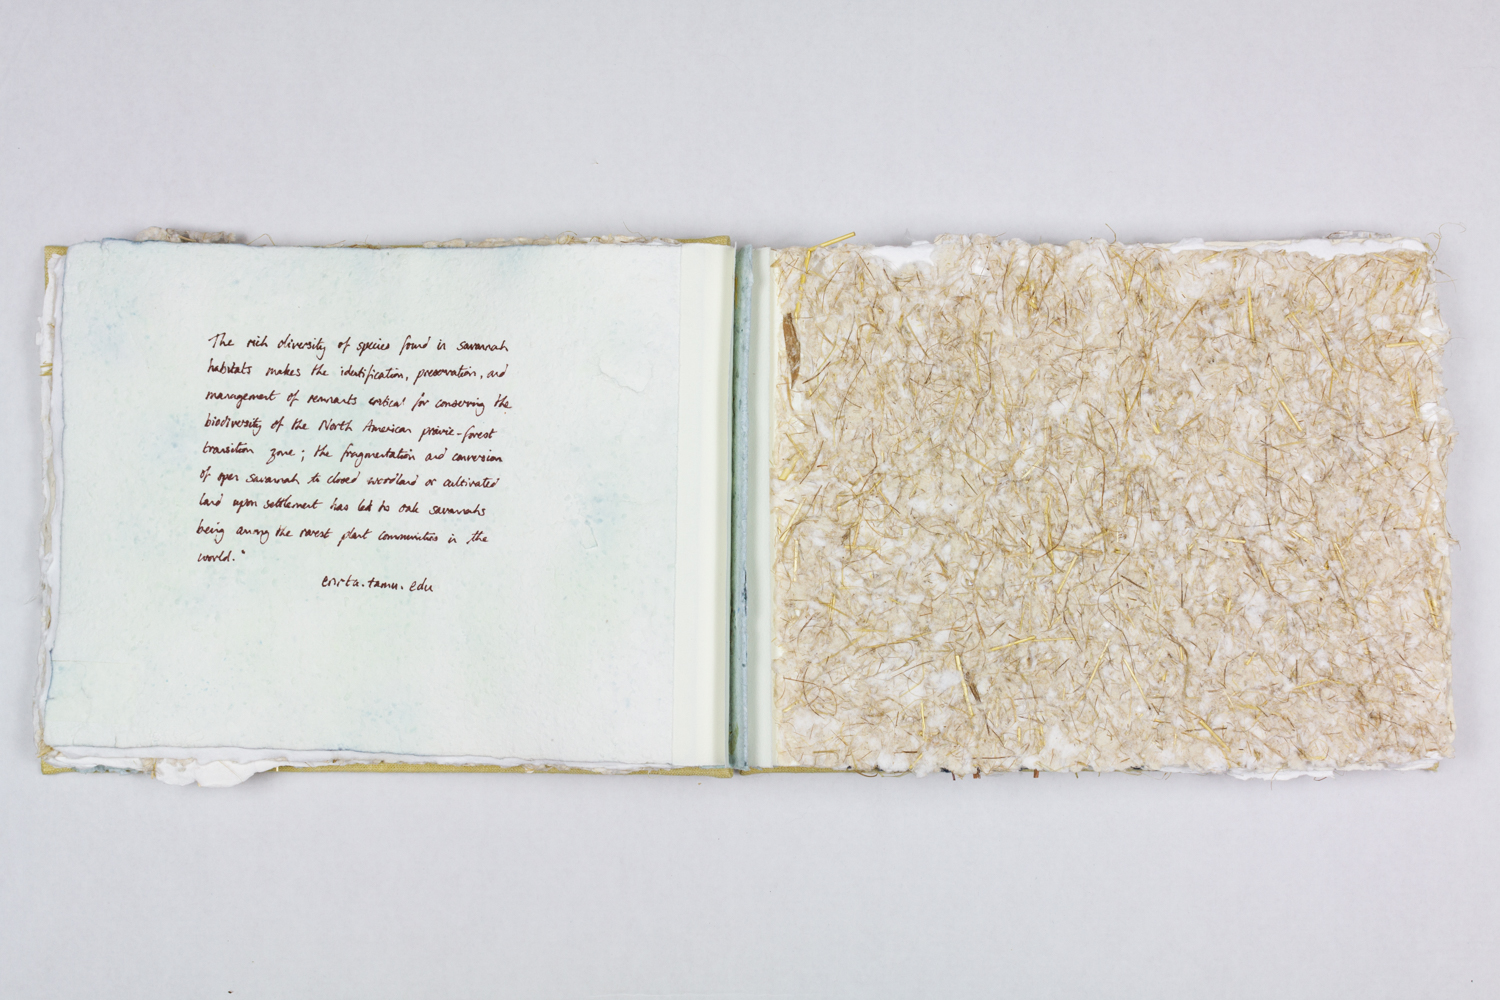 The rich diversity of species found in savannah
habitats makes the identification, preservation, and
management of remnants critical for conserving the
biodiversity of the North American prairie-forest
transition zone; the fragmentation and conversion
of open savannah to closed woodland or cultivated
land upon settlement has led to oak savannahs
being among the rarest plant communities in the
world."
.tamu.edu